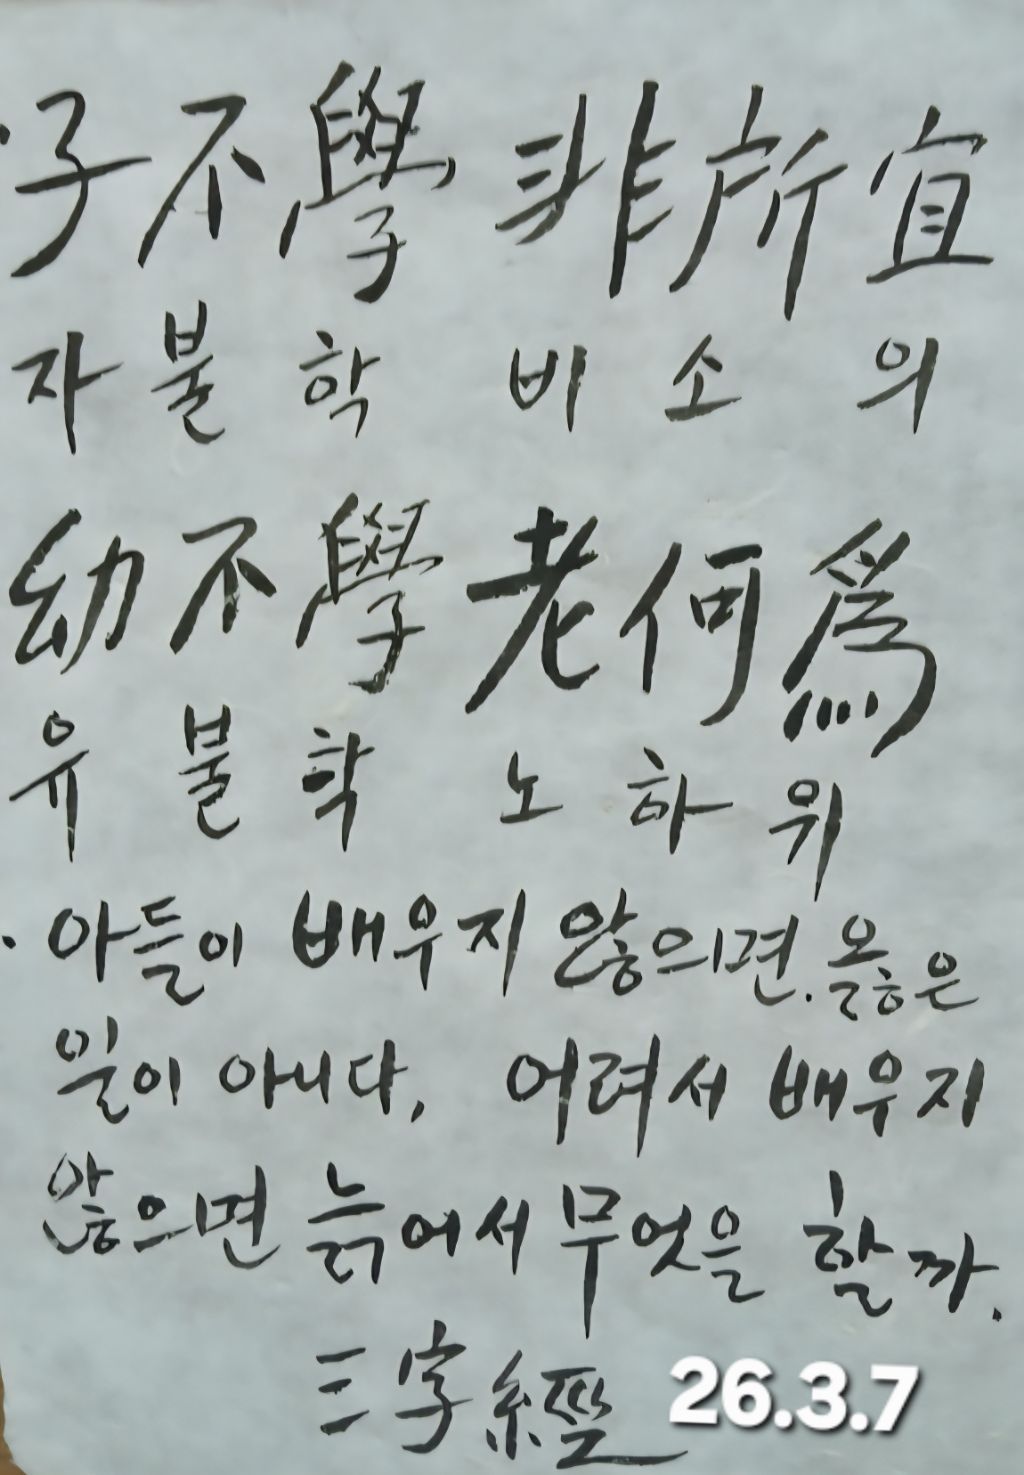 子不學 非所宜
자불학 비소의
幼不學 老何爲
유불학 노하위
아들이 배우지 않으면. 옳은
일이 아니다, 어려서 배우지
않으면 늙어서 무엇을 할까.
三字經 26.3.7